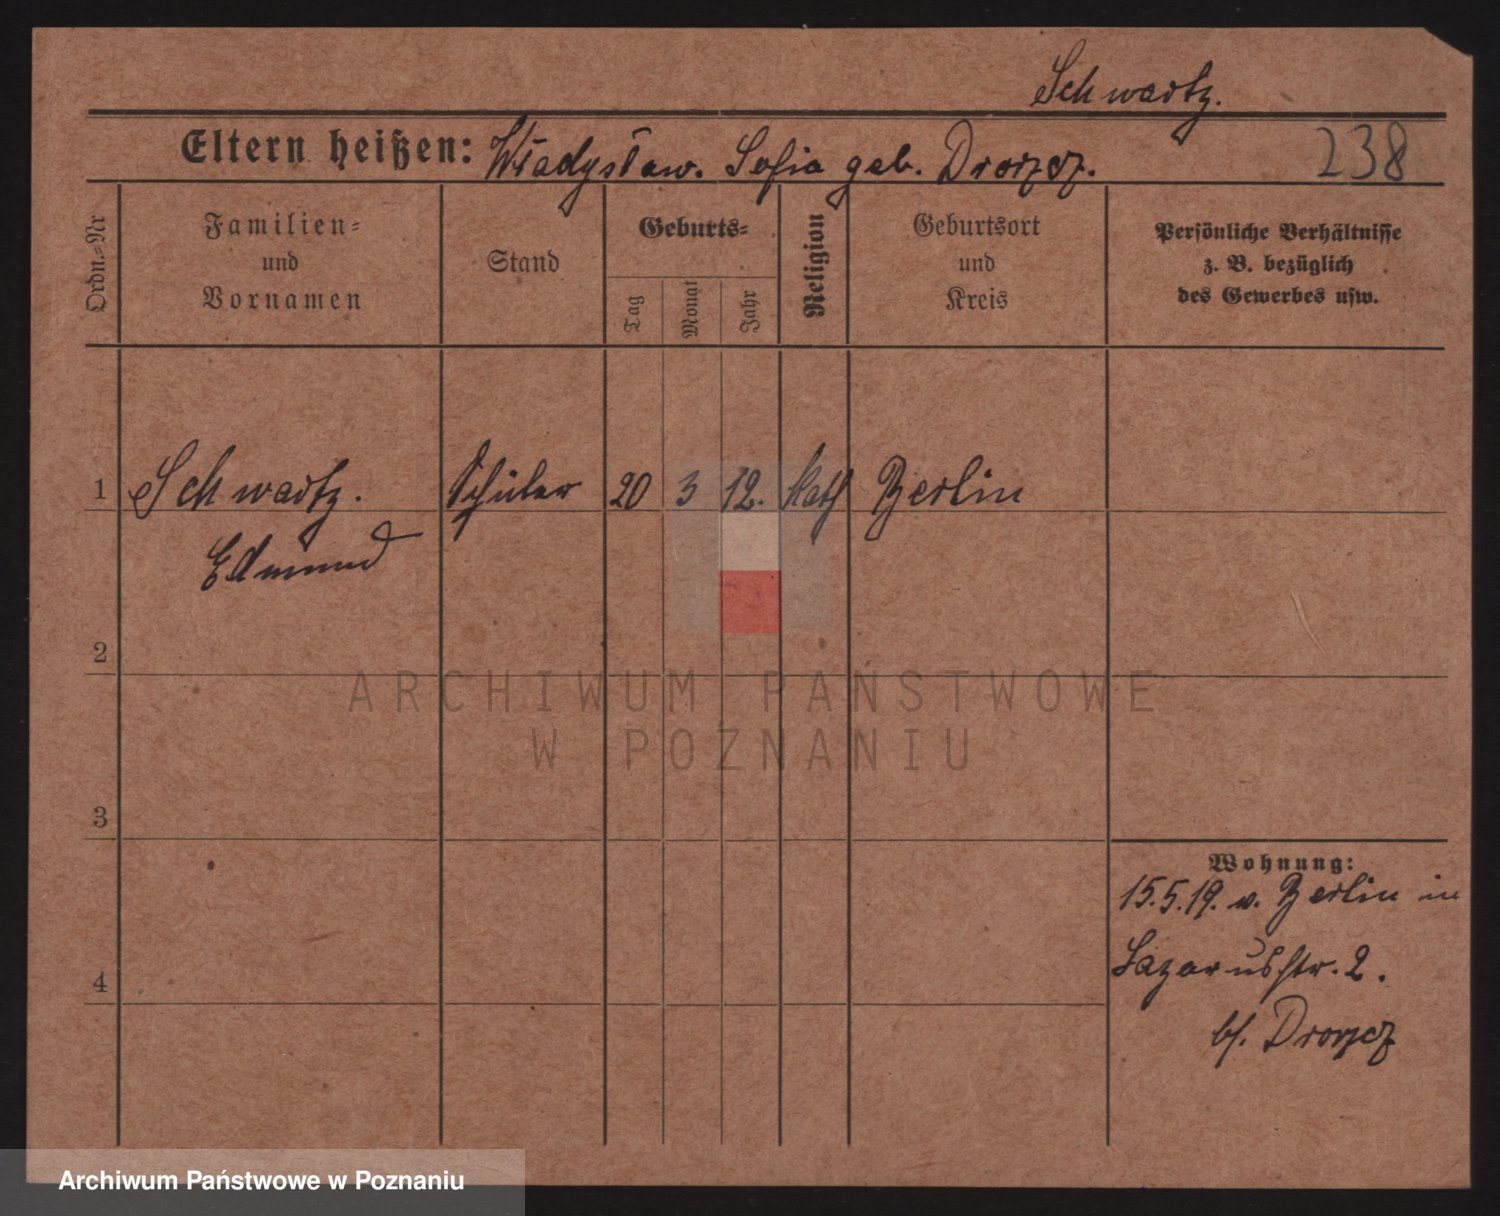 Schwartz.
Eltern heißen: Władysław. Sofia geb.
238
Ordn.-Nr
Familien-
und
Vornamen
Stand
Geburts-
Tag
Monat
Jahr
Religion
Geburtsort
und
Kreis
Persönliche Verhältnisse
z. B. bezüglich
des Gewerbes usw.
1 Schwartz. Schüler 20 3 12. kath Berlin
Edmund
2
3
4
Wohnung:
15.5.19. v. Berlin in
Lazarusstr. 2.
b/.
ARCHIWUM PAŃSTWOWE
W POZNANIU
Archiwum Państwowe w Poznaniu